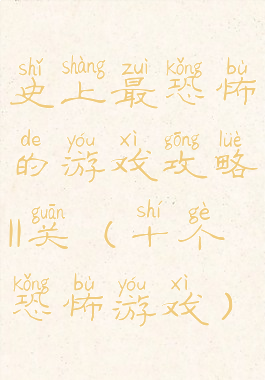 shǐ shàng zuì kǒng bù
史上最恐怖
de yóu xì gōng lüè
的游戏攻略
guān shí gè
11关（十个
kǒng bù yóu xì
恐怖游戏）